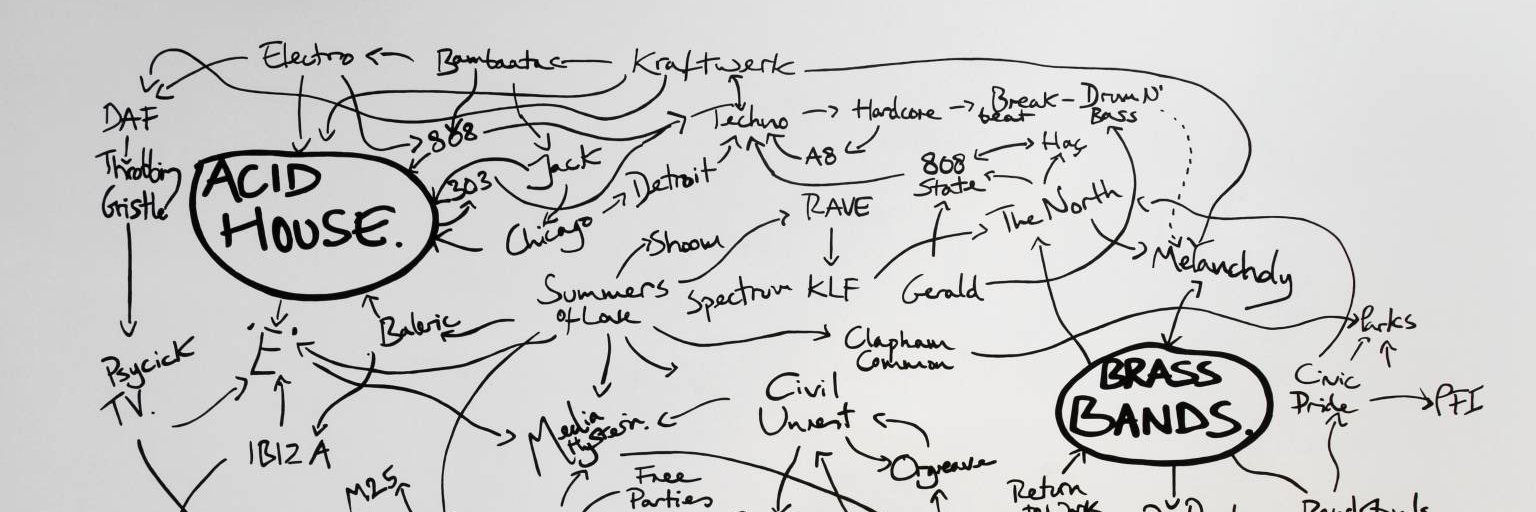 Electro
Bambaataa
Kraftwerk
DAF
808
Techno
Hardcore
Break-
beat
Drum N'
Bass
Throbbing
Gristle
ACID
HOUSE.
303
Jack
Detroit
A8
808
State
Haç
Chicago
Shoom
RAVE
The North
Summers
of Love
Spectrum
KLF
Gerald
Melancholy
'E'
Baleric
Clapham
Common
Parks
Psycick
TV.
IBIZA
Media
Hysteria.
Civil
Unrest
BRASS
BANDS.
Civic
Pride
PFI
Orgreave
M25
Free
Parties
Return
to Work